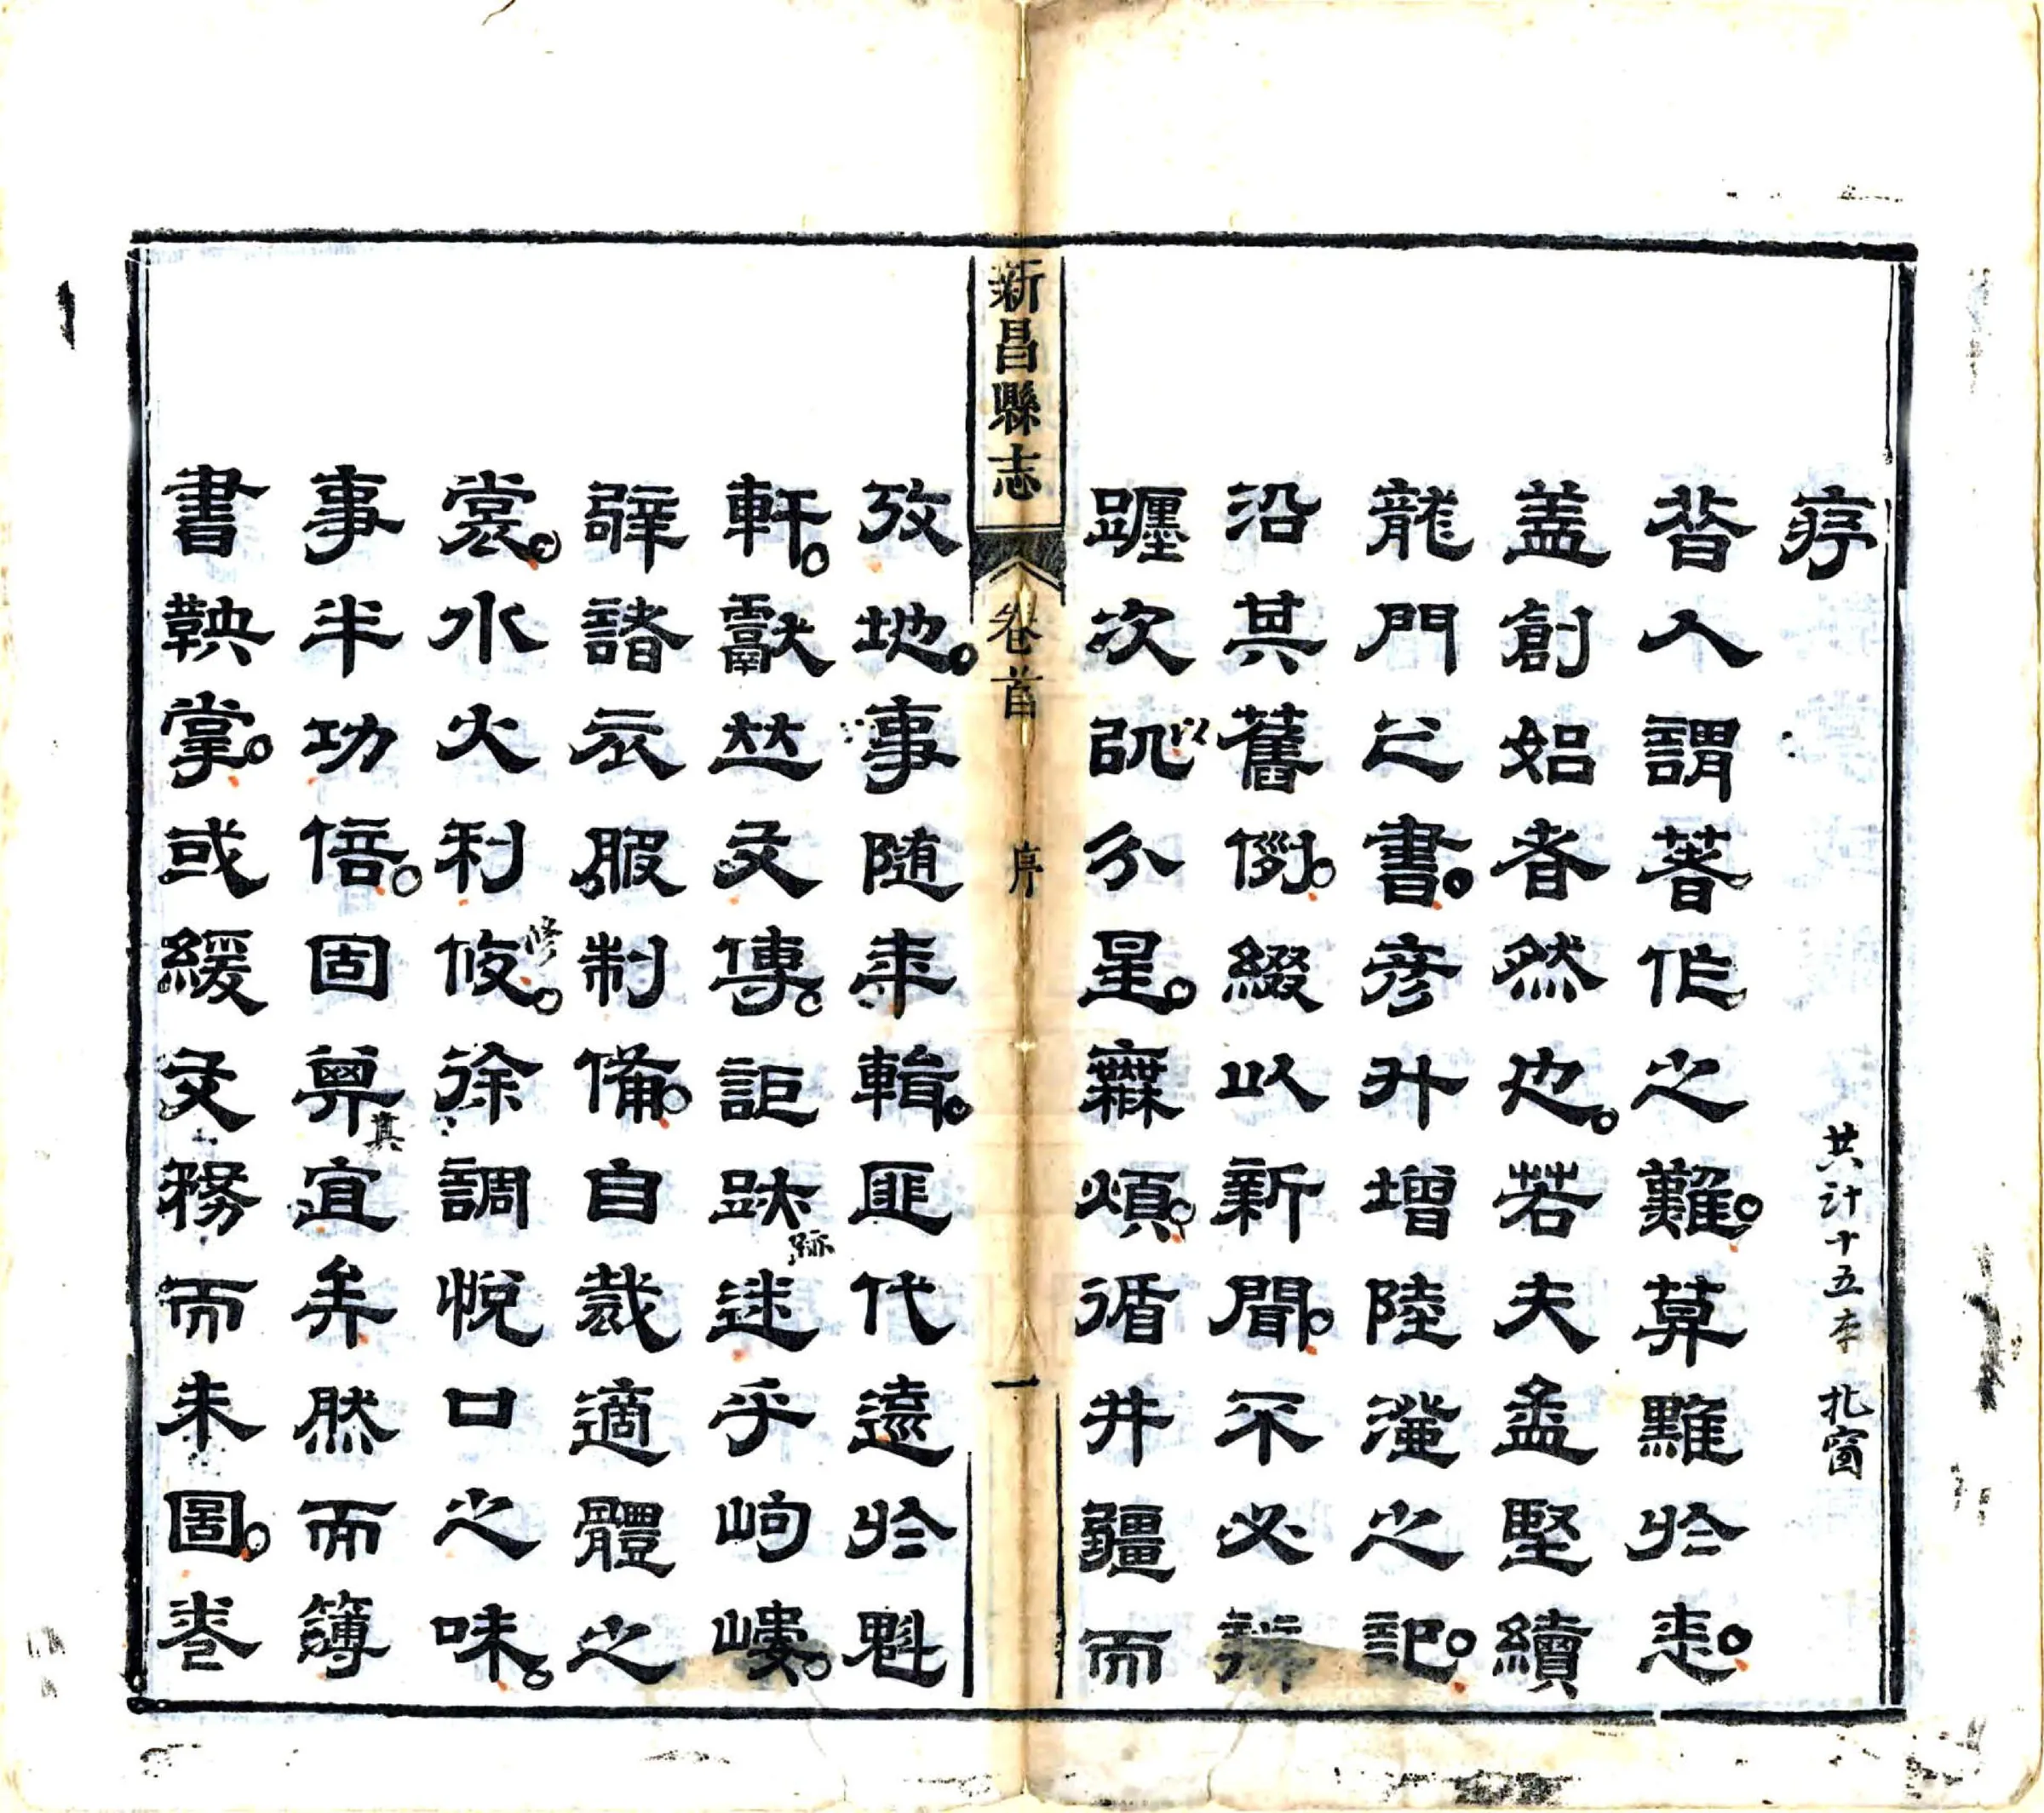 序
共計十五本
昔人謂著作之難莫難於志
蓋創始者然也若夫孟堅續
龍門之書彥升增陸澄之記
沿其舊例綴以新聞不必辨
躔次以分星無煩循井疆而
以
新昌縣志 卷首 序 一
攷地事隨年輯匪代遠於魁
軒獻並文傳詎跡迷乎岣嶁
跡
辟諸衣服制備自裁適體之
裳水火利修徐調悅口之味
修
事半功倍固其宜矣然而簿
其
書鞅掌或緩文務而未圖卷